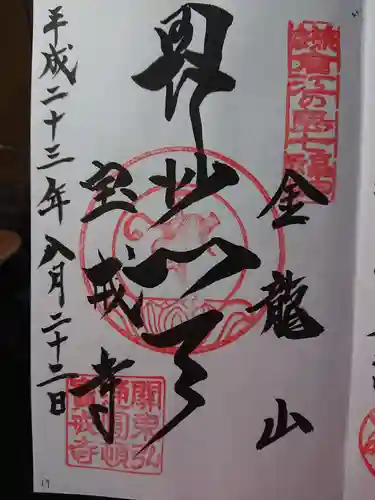 鎌倉江の島七福神
金龍山
毘沙門天
宝戒寺
平成二十三年八月二十二日
關東弘
通圓頓
寶戒寺